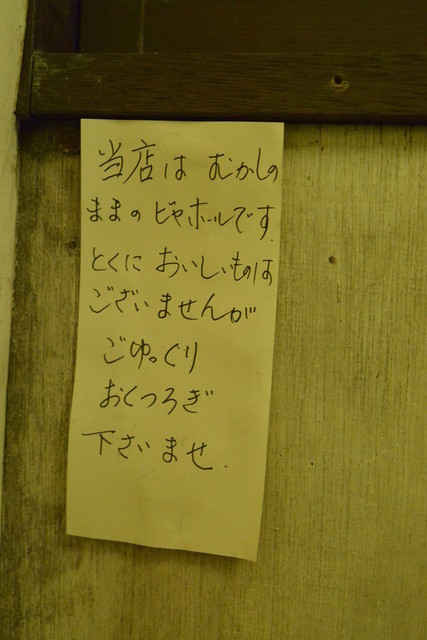 当店は むかしの
ままの ビヤホールです.
とくに おいしいものは
ございませんが
ごゆっくり
おくつろぎ
下さいませ.